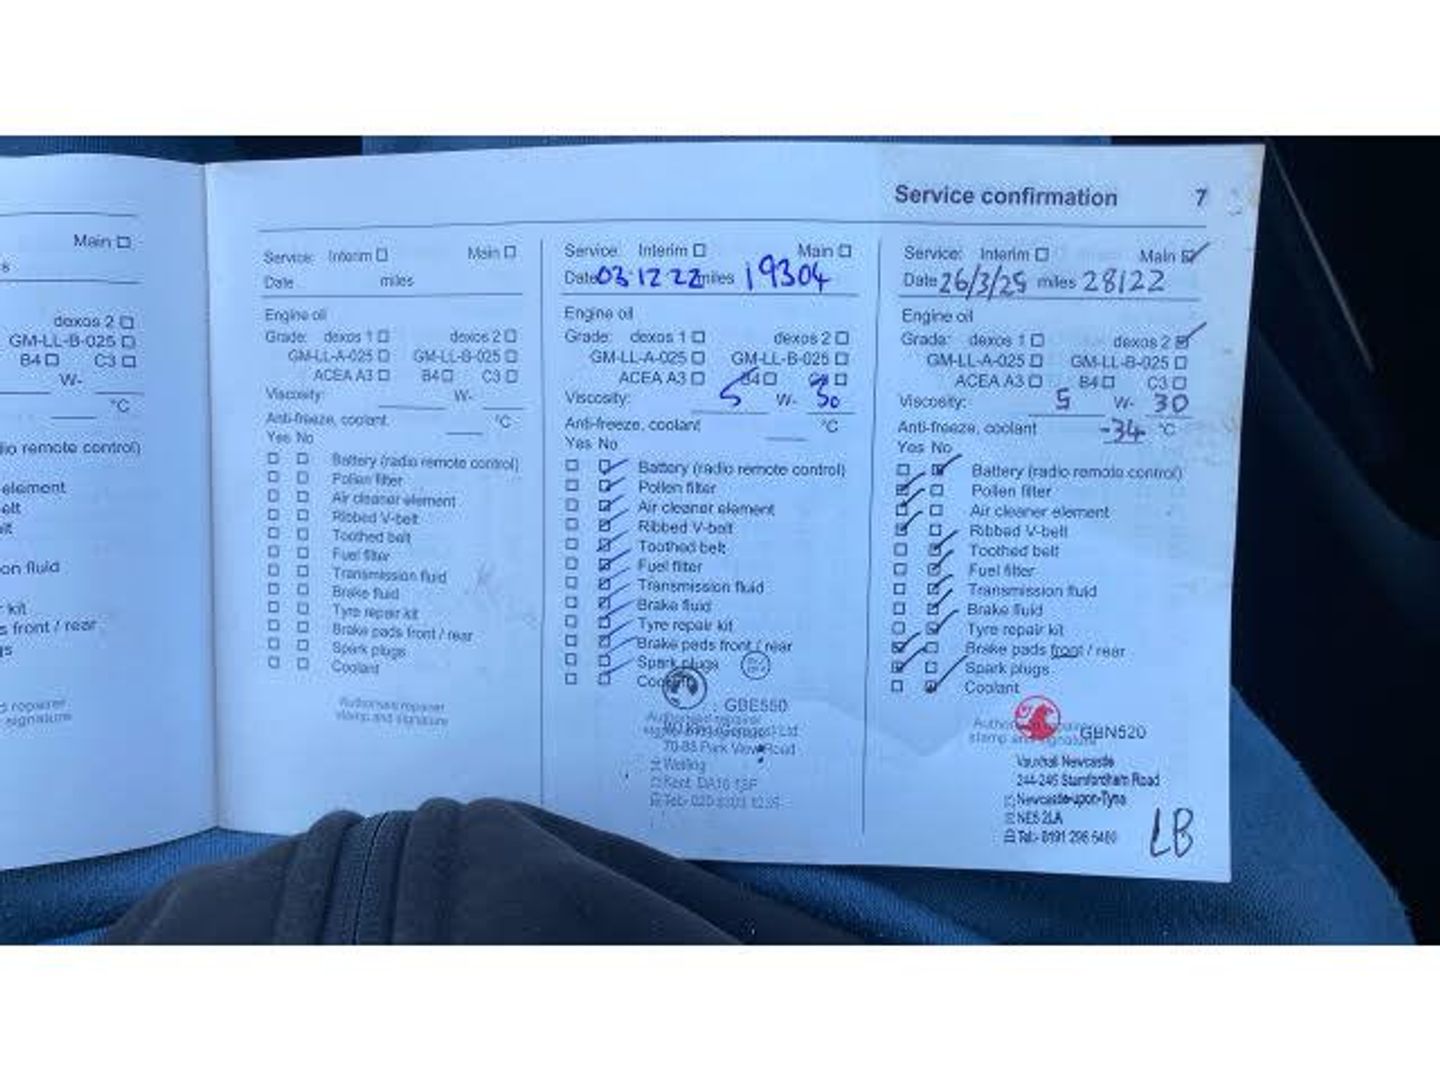 Service confirmation 7
Main
dexos 2
GM-LL-B-025
B4 C3
W-
°C
io remote control)
element
elt
on fluid
kit
s front / rear
gs
signature
Service: Interim Main
Date miles
Engine oil
Grade: dexos 1 dexos 2
GM-LL-A-025 GM-LL-B-025
ACEA A3 B4 C3
Viscosity: W-
Anti-freeze, coolant °C
Yes No
Battery (radio remote control)
Pollen filter
Air cleaner element
Ribbed V-belt
Toothed belt
Fuel filter
Transmission fluid
Brake fluid
Tyre repair kit
Brake pads front / rear
Spark plugs
Coolant
Authorised repairer
stamp and signature
Service: Interim Main
Date 03 12 22 miles 19304
Engine oil
Grade: dexos 1 dexos 2
GM-LL-A-025 GM-LL-B-025
ACEA A3 B4
Viscosity: 5 W- 30
Anti-freeze, coolant °C
Yes No
Battery (radio remote control)
Pollen filter
Air cleaner element
Ribbed V-belt
Toothed belt
Fuel filter
Transmission fluid
Brake fluid
Tyre repair kit
Brake pads front / rear
Spark plugs
Coolant
GBE550
Authorised repairer
70-88 Park View Road
Welling
Kent DA16 1SF
Service: Interim Main
Date 26/3/25 miles 28122
Engine oil
Grade: dexos 1 dexos 2
GM-LL-A-025 GM-LL-B-025
ACEA A3 B4 C3
Viscosity: 5 W- 30
Anti-freeze, coolant -34 °C
Yes No
Battery (radio remote control)
Pollen filter
Air cleaner element
Ribbed V-belt
Toothed belt
Fuel filter
Transmission fluid
Brake fluid
Tyre repair kit
Brake pads front / rear
Spark plugs
Coolant
Authorised repairer
stamp and signature
GBN520
Vauxhall Newcastle
244-246 Stamfordham Road
Newcastle-upon-Tyne
NE5 2LA
Tel:- 0191 286
LB